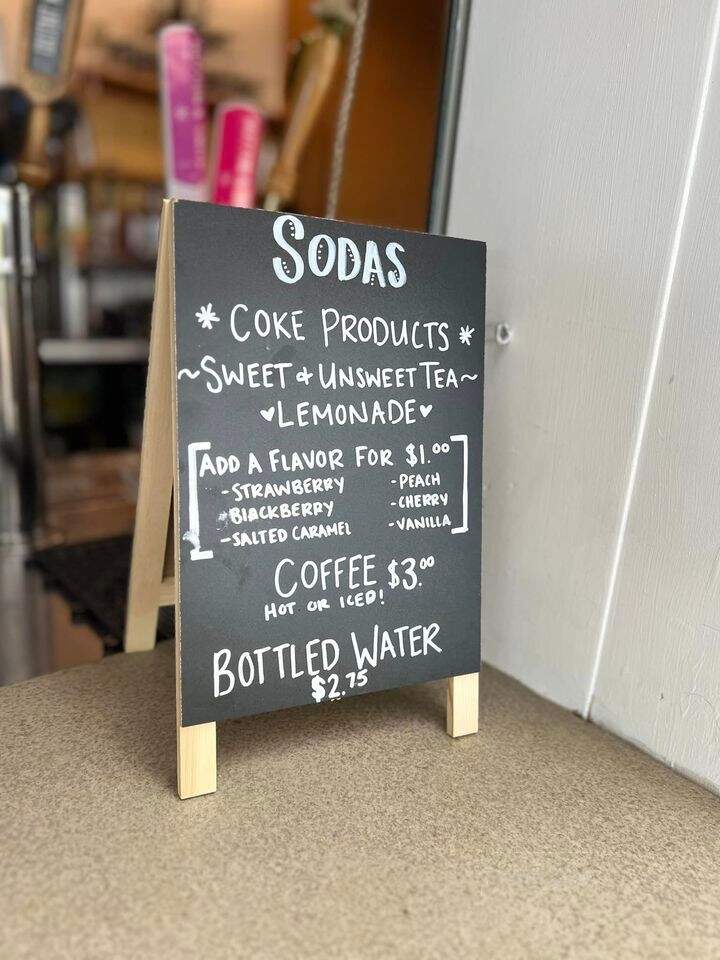 SODAS
* COKE PRODUCTS *
~SWEET & UNSWEET TEA~
♥LEMONADE♥
[ADD A FLAVOR FOR $1.00]
-STRAWBERRY -PEACH
-BLACKBERRY -CHERRY
-SALTED CARAMEL -VANILLA
COFFEE $3.00
HOT OR ICED!
BOTTLED WATER
$2.75